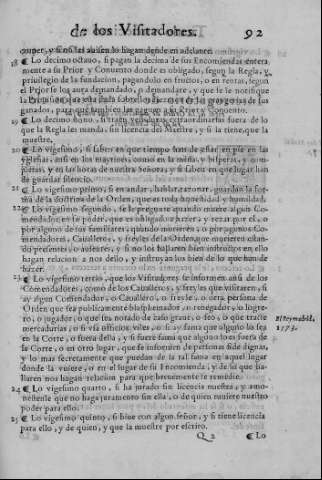 de los Visitadores. 92
romper, y si no las ausen lo hagan dende en adelante.
18 ¶ Lo decimo octauo, si pagan la decima de sus Encomiendas entera
mente a su Prior y Conuento donde es obligado, segun la Regla, y
priuilegio de la fundacion, pagandolo en fructos, o en rentas, segun
el Prior se los aura demandado, o demandare, y que se le notifique
ganados, para que también las paguen a su Prior y Conuento.
19 ¶ Lo decimo nono, si traen vestiduras extraordinarias fuera de lo
que la Regla les manda, sin licencia del Maestre, y si la tiene, que la
muestre.
20 ¶ Lo vigesimo, si saben en que tiempo han de estar en pie en las
yglesias, ansi en los maytines, como en la missa, y bisperas, y com-
pletas, y en las horas de nuestra Señora, y si saben en que lugar han
de guardar silencio.
21 ¶ Lo vigesimo primo, si en andar, hablar, razonar, guardan la for-
ma de la doctrina de la Orden, que es toda honestidad y humildad.
22 ¶ Lo vigesimo segundo, se le pregunte quando muere algun Co-
mendador, o se puede, que es obligado a hazer, y rezar por el, o
por alguno de sus familiares, quando murieren, o por algunos Co-
mendadores, Caualleros, y freyles de la Orden, que murieren estan-
do presentes, o ausentes, y si no los hallaren bien instructos en ello
hagan relacion a nos dello, y instruyan los bien de lo que han de
hazer.
23 ¶ Lo vigesimo tercio, que los Visitadores se informen ansi de los
Comendadores, como de los Caualleros, y freyles que visitaren, si
ay algun Comendador, o Cauallero, o freyle, o otra persona de
Orden que sea publicamente blasphemador, o renegador, o logre-
ro, o jugador, o que sea notado de caso graue, o feo, o que tracte
mercadurias, o si vsa officios viles, o si ay fama que alguno lo sea
en la Corte, o fuera della, y si fuere fama que alguno lo es fuera de
la Corte, o en otro lugar, que se informen de personas fide dignas,
y lo mas secretamente que puedan de la tal fama en aquel lugar
donde la vuiere, o en el lugar de su Encomienda, y de lo que ha-
llaren nos hagan relacion para que breuemente se remedie.
El Rey madrid,
1573.
24 ¶ Lo vigesimo quarto, si ha jurado sin licencia nuestra, y amo-
nestenle que no haga juramento sin ella, o de quien tuuiere nuestro
poder para ello.
25 ¶ Lo vigesimo quinto, si biue con algun señor, y si tiene licencia
para ello, y de quien, y que la muestre por escrito.
Q 2 ¶ Lo